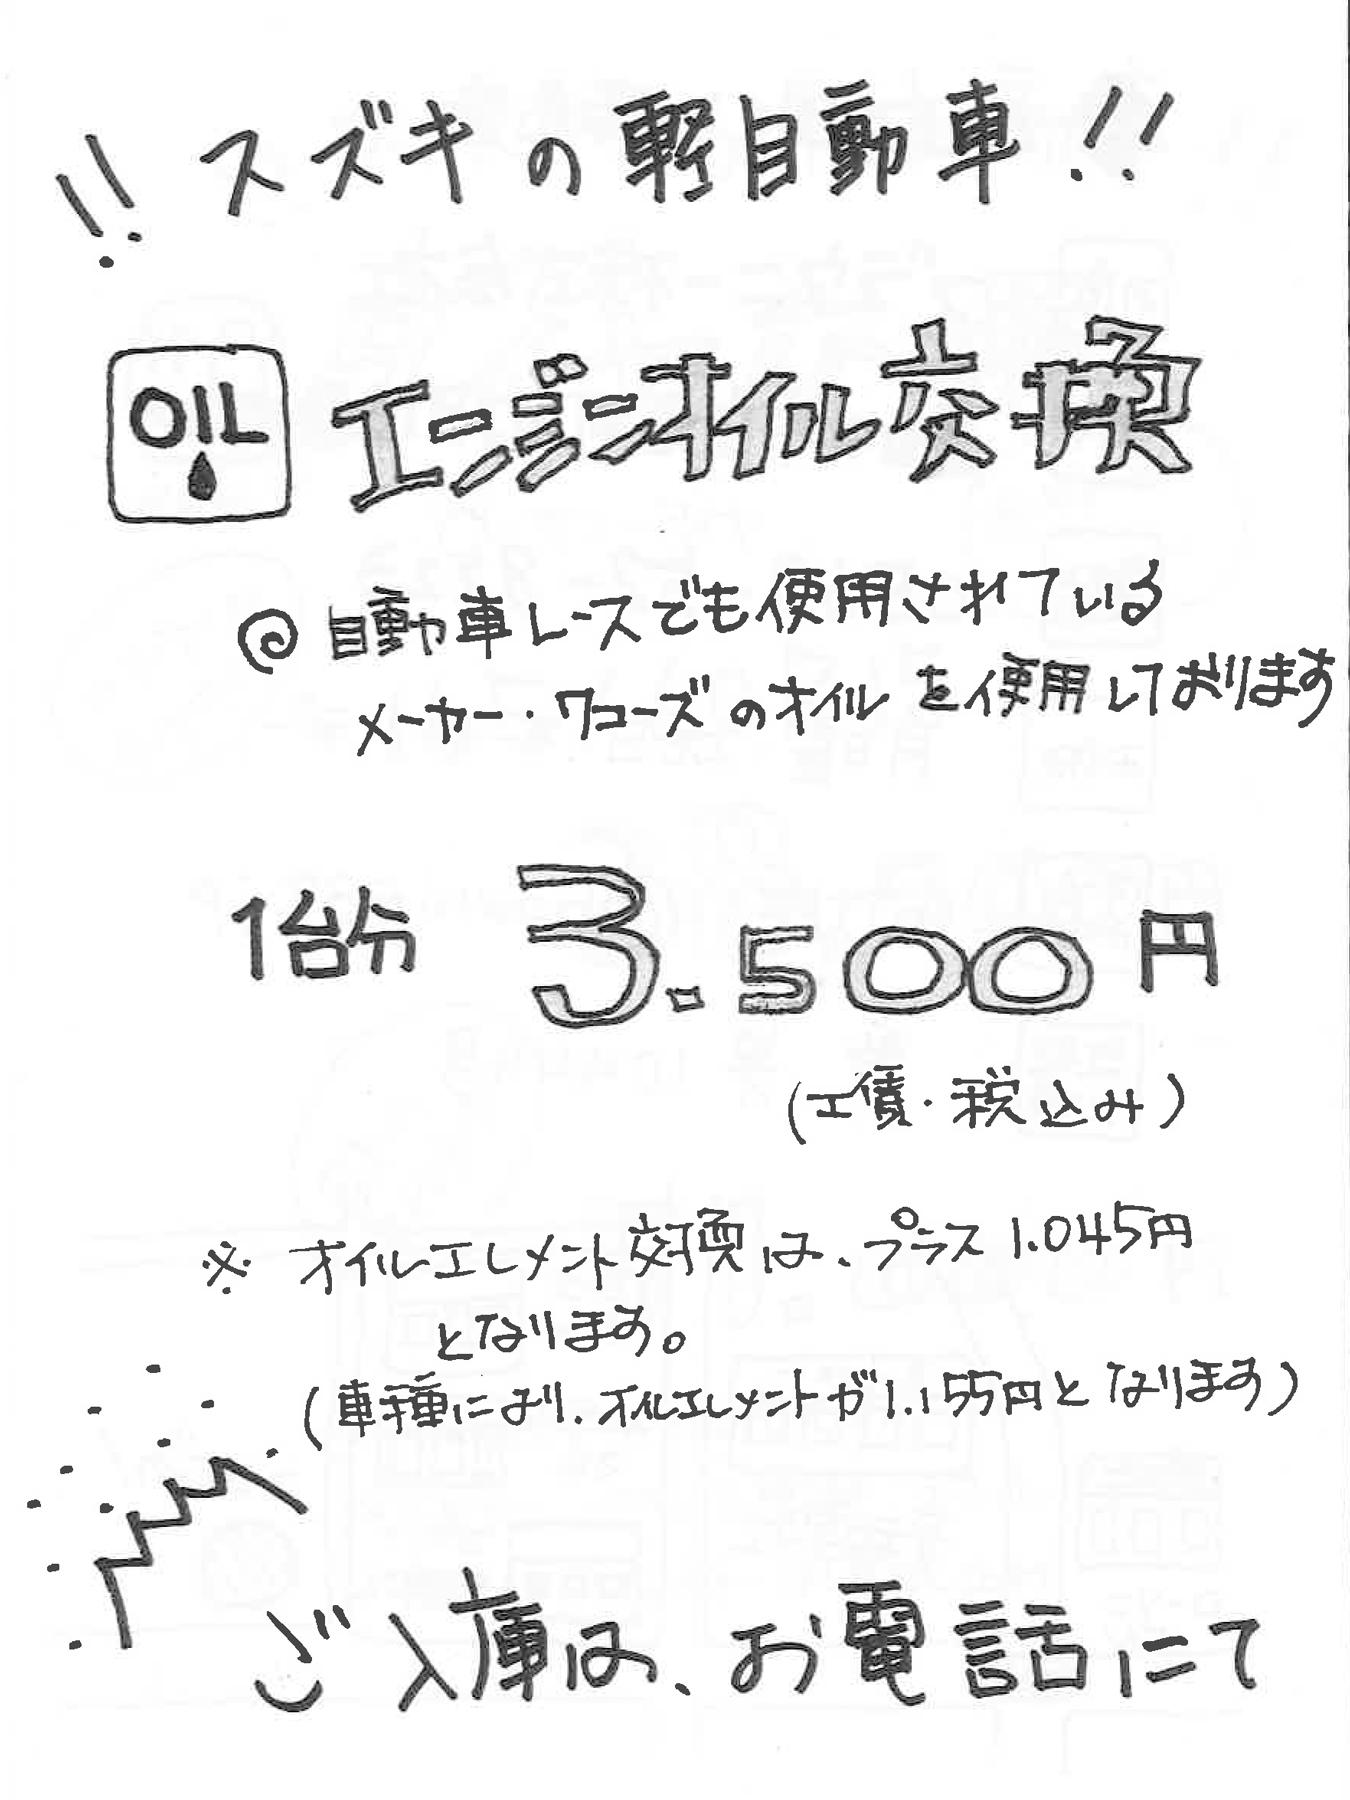 !! スズキの軽自動車!!
OIL
エンジンオイル交換
◎ 自動車レースでも使用されている
メーカー・ワコーズのオイルを使用しております
1台分 3.500円
(工賃・税込み)
※ オイルエレメント交換は、プラス 1.045円
となります。
(車種により、オイルエレメントが1.155円となります)
ご入庫は、お電話にて